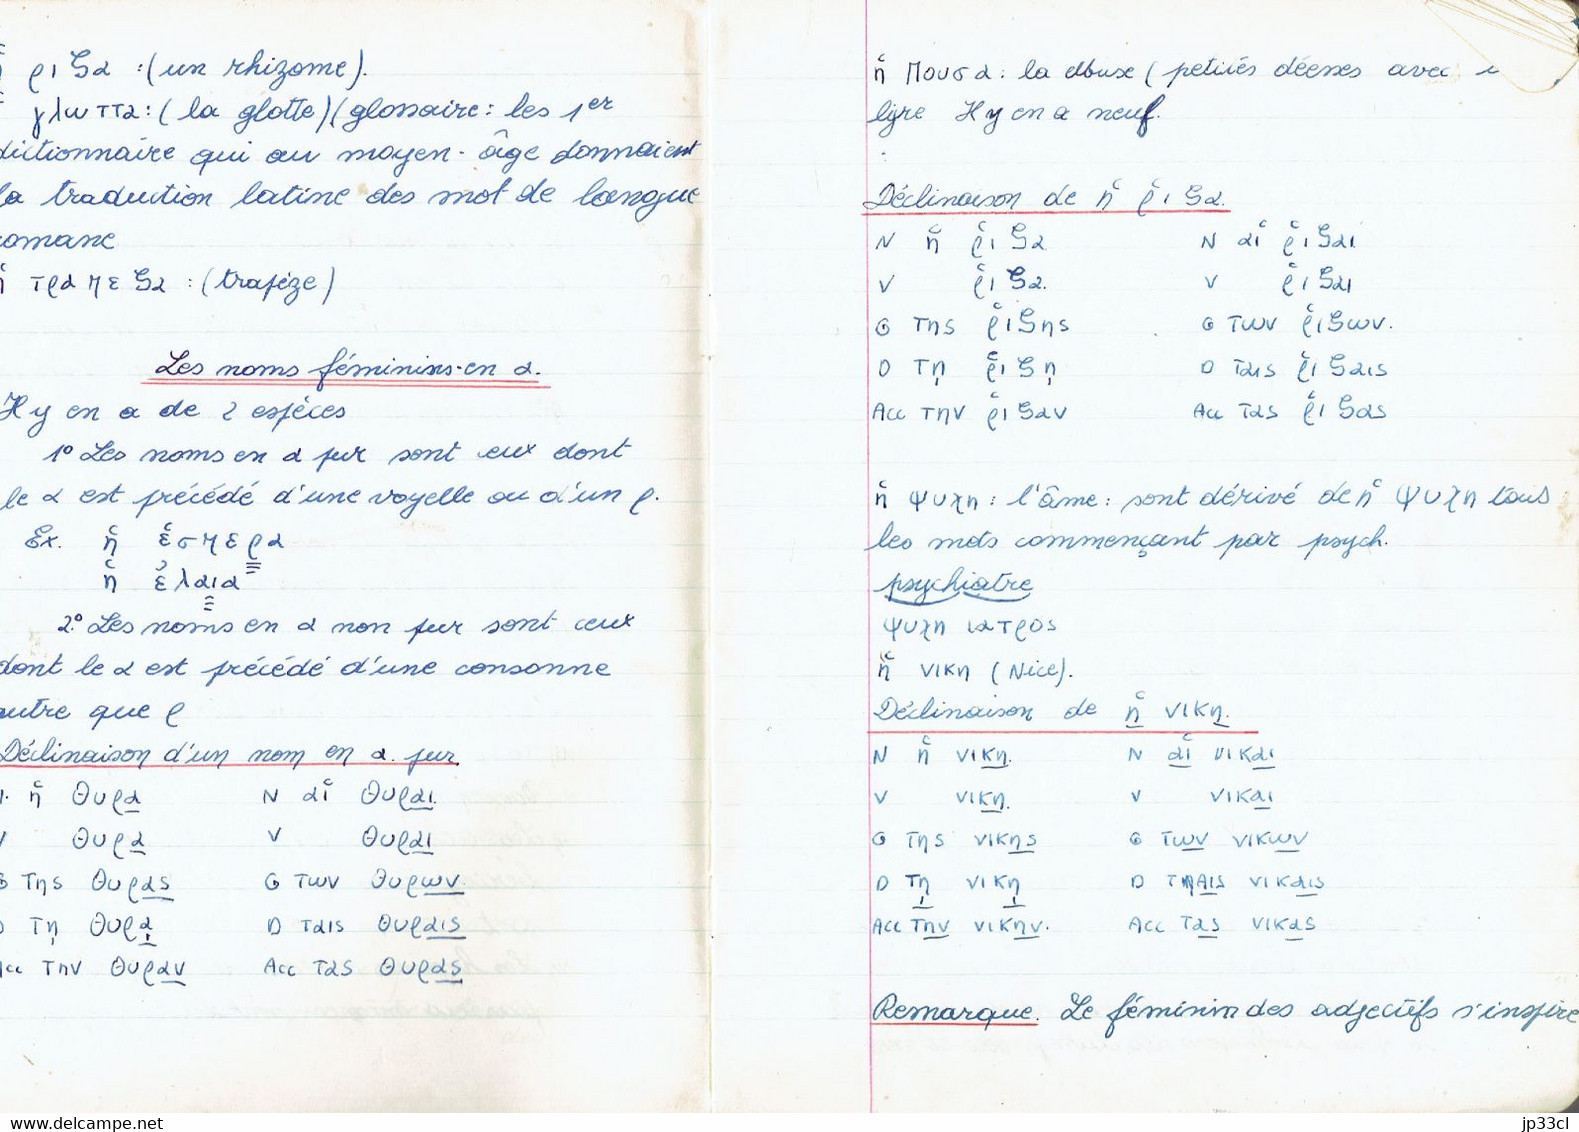 ἡ ριζα : (un rhizome).
ἡ γλωττα : (la glotte) (glossaire : les 1er
dictionnaire qui au moyen-âge donnaient
la traduction latine des mot de langue
romane
ἡ τραπεζα : (trapèze)
Les noms féminins en α.
Il y en a de 2 espèces
1° Les noms en α pur sont ceux dont
le α est précédé d'une voyelle ou d'un ρ.
Ex. ἡ ἑσπερα
ἡ ἐλαια
2° Les noms en α non pur sont ceux
dont le α est précédé d'une consonne
autre que ρ
Déclinaison d'un nom en α pur
N ἡ θυρα N αἱ θυραι
V θυρα V θυραι
G της θυρας G των θυρων
D τῃ θυρᾳ D ταις θυραις
Acc την θυραν Acc τας θυρας
ἡ Μουσα : la Muse (petites déesses avec
lyre Il y en a neuf.
Déclinaison de ἡ ῥιζα.
N ἡ ῥιζα N αἱ ῥιζαι
V ῥιζα. V ῥιζαι
G της ῥιζης G των ῥιζων.
D τῃ ῥιζῃ D ταις ῥιζαις
Acc την ῥιζαν Acc τας ῥιζας
ἡ ψυχη : l'âme : sont dérivé de ἡ ψυχη tous
les mots commençant par psych.
psychiatre
ψυχη ιατρος
ἡ νικη (Nice).
Déclinaison de ἡ νικη.
N ἡ νικη. N αἱ νικαι
V νικη. V νικαι
G της νικης G των νικων
D τῃ νικῃ D ταις νικαις
Acc την νικην. Acc τας νικας
Remarque. Le féminin des adjectifs s'inspire
www.delcampe.net
jp33cl